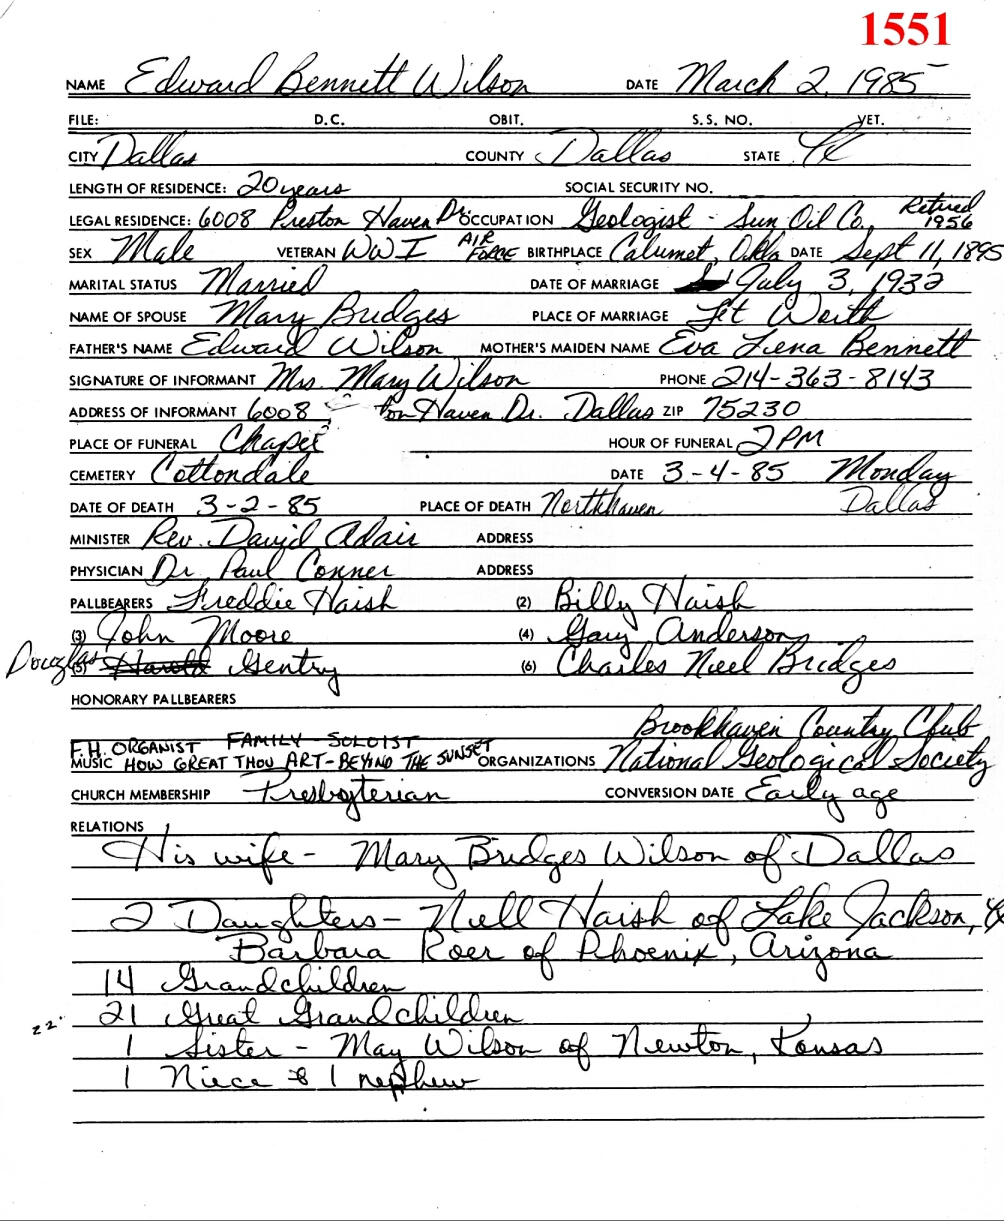 1551
NAME Edward Bennett Wilson DATE March 2, 1985
FILE: D.C. OBIT. S.S. NO. VET.
CITY Dallas COUNTY Dallas STATE Tx
LENGTH OF RESIDENCE: 20 years SOCIAL SECURITY NO.
LEGAL RESIDENCE: 6008 Preston Haven Dr. OCCUPATION Geologist - Sun Oil Co., Retired 1956
SEX Male VETERAN WW I AIR FORCE BIRTHPLACE Calumet, Okla DATE Sept 11, 1895
MARITAL STATUS Married DATE OF MARRIAGE July 3, 1932
NAME OF SPOUSE Mary Bridges PLACE OF MARRIAGE Ft Worth
FATHER'S NAME Edward Wilson MOTHER'S MAIDEN NAME Eva Lena Bennett
SIGNATURE OF INFORMANT Mrs. Mary Wilson PHONE 214-363-8143
ADDRESS OF INFORMANT 6008 ton Haven Dr. Dallas ZIP 75230
PLACE OF FUNERAL Chapel HOUR OF FUNERAL 2 PM
CEMETERY Cottondale DATE 3-4-85 Monday
DATE OF DEATH 3-2-85 PLACE OF DEATH Northhaven Dallas
MINISTER Rev. David Adair ADDRESS
PHYSICIAN Dr. Paul Conner ADDRESS
PALLBEARERS Freddie Haish (2) Billy Haish
(3) John Moore (4) Gary Anderson
Douglas (5) Harold Gentry (6) Charles Neel Bridges
HONORARY PALLBEARERS
Brookhaven Country Club
F.H. ORGANIST FAMILY SOLOIST
MUSIC HOW GREAT THOU ART - BEYOND THE SUNSET ORGANIZATIONS National Geological Society
CHURCH MEMBERSHIP Presbyterian CONVERSION DATE Early age
RELATIONS
His wife - Mary Bridges Wilson of Dallas
2 Daughters - Nell Haish of Lake Jackson, Tx
Barbara Roer of Phoenix, Arizona
14 Grandchildren
21 Great Grandchildren
22
1 Sister - May Wilson of Newton, Kansas
1 Niece & 1 nephew